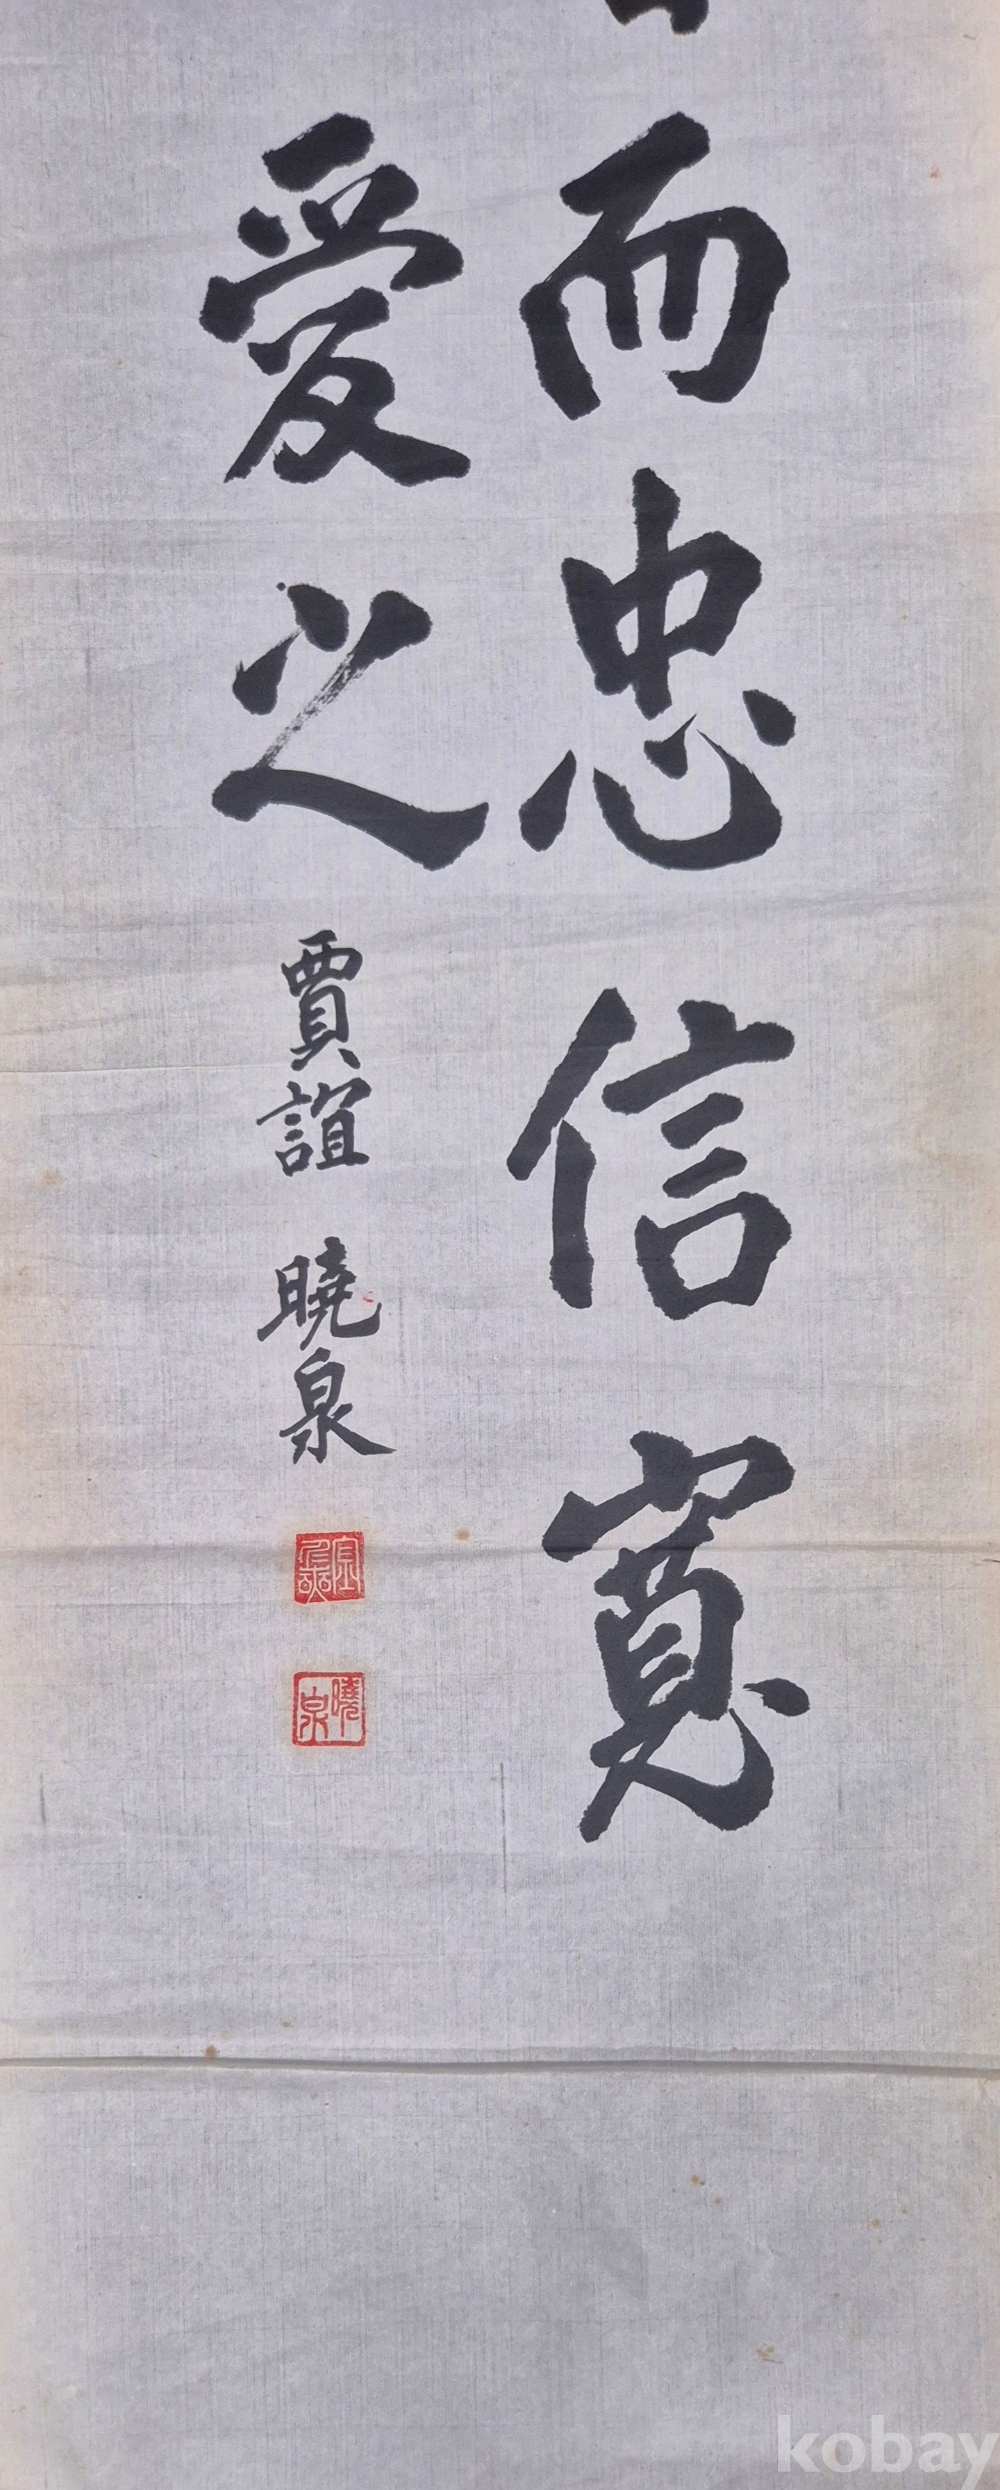 而忠信寬
愛之
賈誼 曉泉
曉泉
kobay